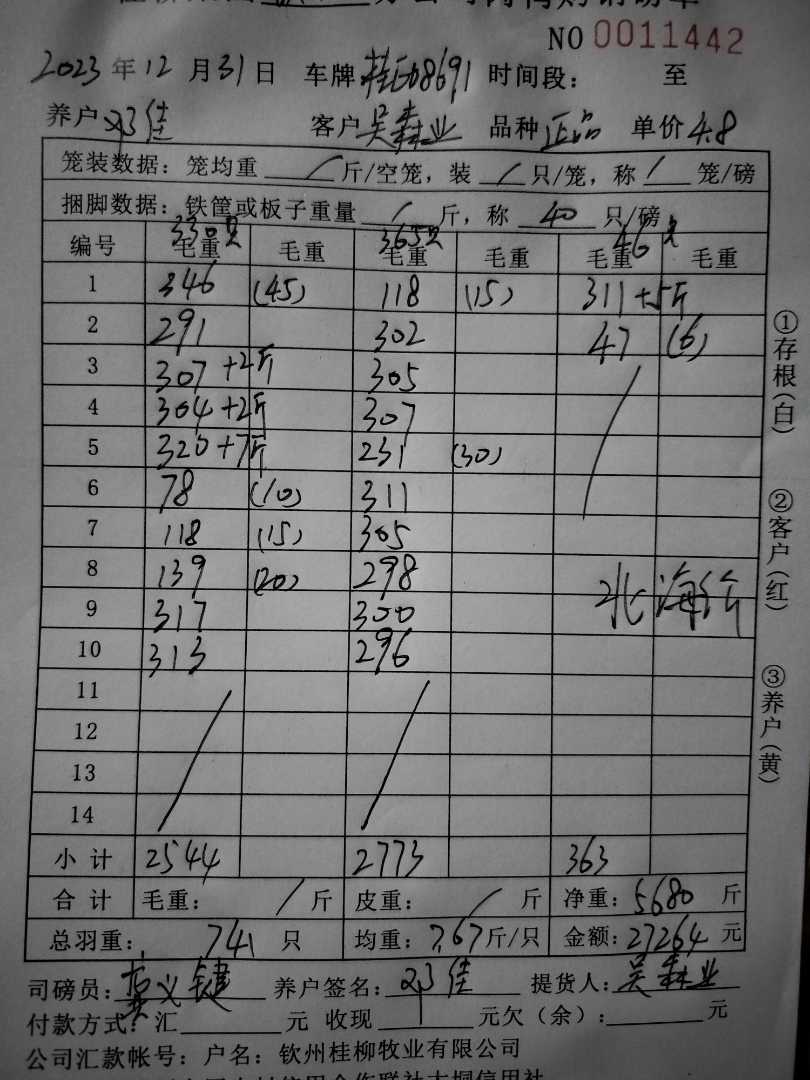 NO 0011442
2023 年 12 月 31 日 车牌 桂 08691 时间段: 至
养户 邓佳 客户 吴森业 品种 正品 单价 4.8
笼装数据: 笼均重 / 斤/空笼, 装 / 只/笼, 称 / 笼/磅
捆脚数据: 铁筐或板子重量 / 斤, 称 40 只/磅
330只 365只 46只
编号 毛重 毛重 毛重 毛重 毛重 毛重
1 346 (45) 118 (15) 311+5斤
2 291 302 47 (6)
3 307+2斤 305
4 304+2斤 307
5 320+7斤 231 (30)
6 78 (10) 311
7 118 (15) 305
8 139 (20) 298 北海
9 317 300
10 313 296
11
12
13
14
小计 2544 2773 363
合计 毛重: / 斤 皮重: / 斤 净重: 5680 斤
总羽重: 741 只 均重: 7.67 斤/只 金额: 27264 元
司磅员: 义键 养户签名: 邓佳 提货人: 吴森业
付款方式: 汇 元 收现 元欠(余): 元
公司汇款帐号: 户名: 钦州桂柳牧业有限公司
①存根(白)
②客户(红)
③养户(黄)